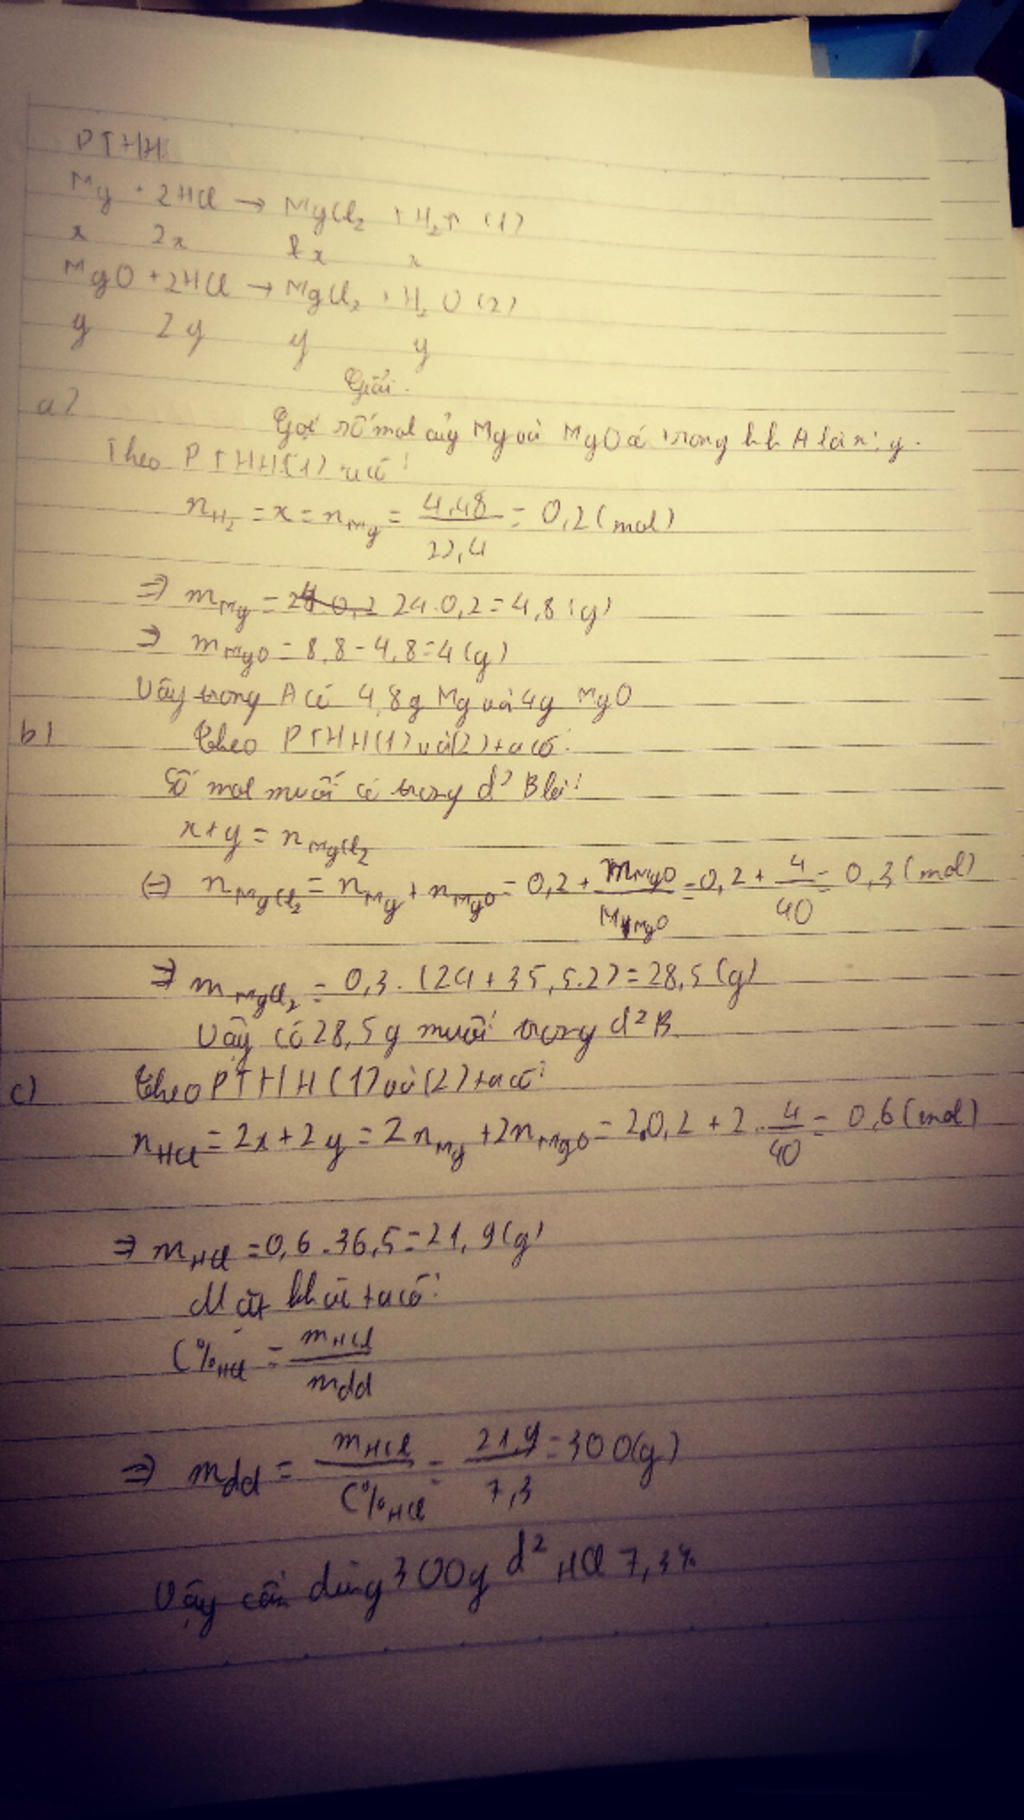 PTHH:
Mg + 2HCl → MgCl₂ + H₂↑ (1)
x 2x x x
MgO + 2HCl → MgCl₂ + H₂O (2)
y 2y y y
Giải.
a) Gọi số mol của Mg và MgO có trong hh A là x; y.
Theo PTHH(1) ta có:
n_H₂ = x = n_Mg = 4,48/22,4 = 0,2 (mol)
⇒ m_Mg = 24.0,2 = 4,8 (g)
⇒ m_MgO = 8,8 - 4,8 = 4 (g)
Vậy trong A có 4,8g Mg và 4g MgO
b) Theo PTHH(1) và (2) ta có:
Số mol muối có trong d² B là:
x + y = n_MgCl₂
(=) n_MgCl₂ = n_Mg + n_MgO = 0,2 + m_MgO/M_MgO = 0,2 + 4/40 = 0,3 (mol)
⇒ m_MgCl₂ = 0,3 . (24 + 35,5.2) = 28,5 (g)
Vậy có 28,5g muối trong d² B.
c) Theo PTHH (1) và (2) ta có:
n_HCl = 2x + 2y = 2n_Mg + 2n_MgO = 2.0,2 + 2.4/40 = 0,6 (mol)
⇒ m_HCl = 0,6 . 36,5 = 21,9 (g)
Mặt khác ta có:
C%_HCl = m_HCl/m_dd
⇒ m_dd = m_HCl/C%_HCl = 21,9/7,3 = 300(g)
Vậy cần dùng 300g d² HCl 7,3%